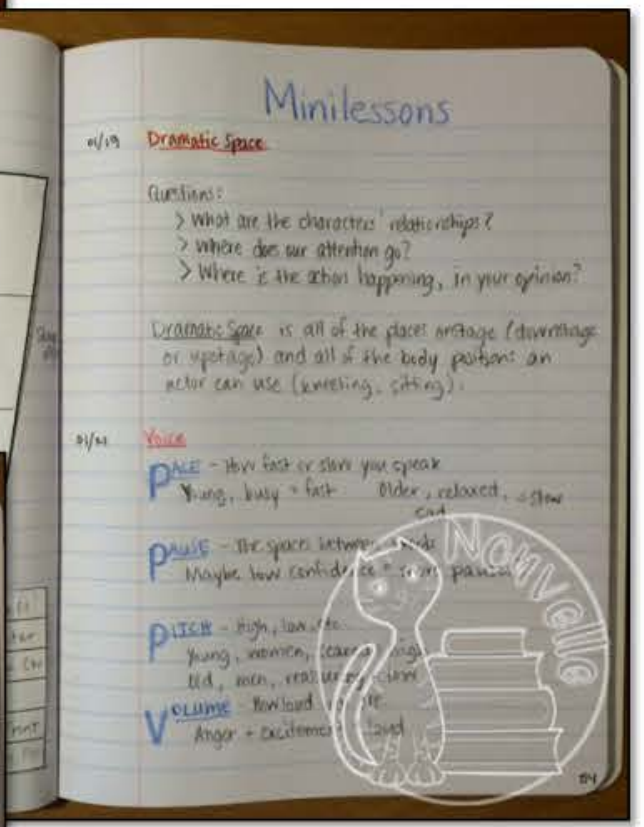 Minilessons
01/19 Dramatic Space
Questions:
> What are the characters' relationships?
> Where does our attention go?
> Where is the action happening, in your opinion?
Dramatic Space is all of the places onstage (downstage
or upstage) and all of the body positions an
actor can use (kneeling, sitting).
Voice
PACE - How fast or slow you speak
Young, busy = fast Older, relaxed, = slow
sad
PAUSE - The spaces between words
Maybe low confidence = more pauses
PITCH - High, low, etc.
Young, women, scared = high
Old, men, = low
VOLUME - How loud
Anger + excitement = loud
NouVelle